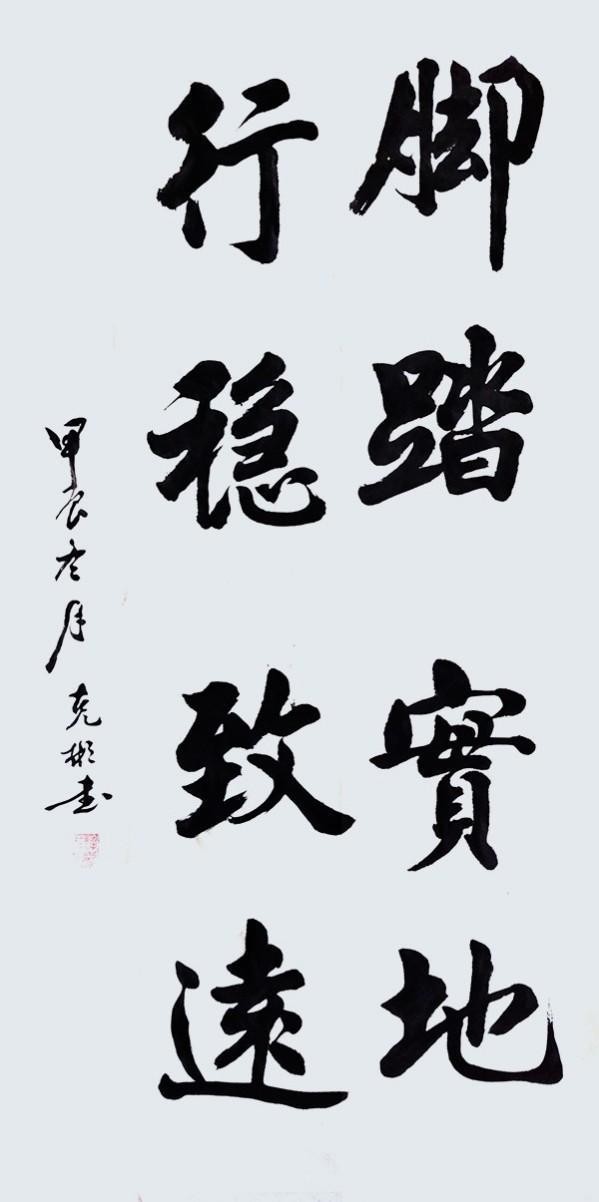 脚踏實地
行稳致遠
甲辰冬月克彬書